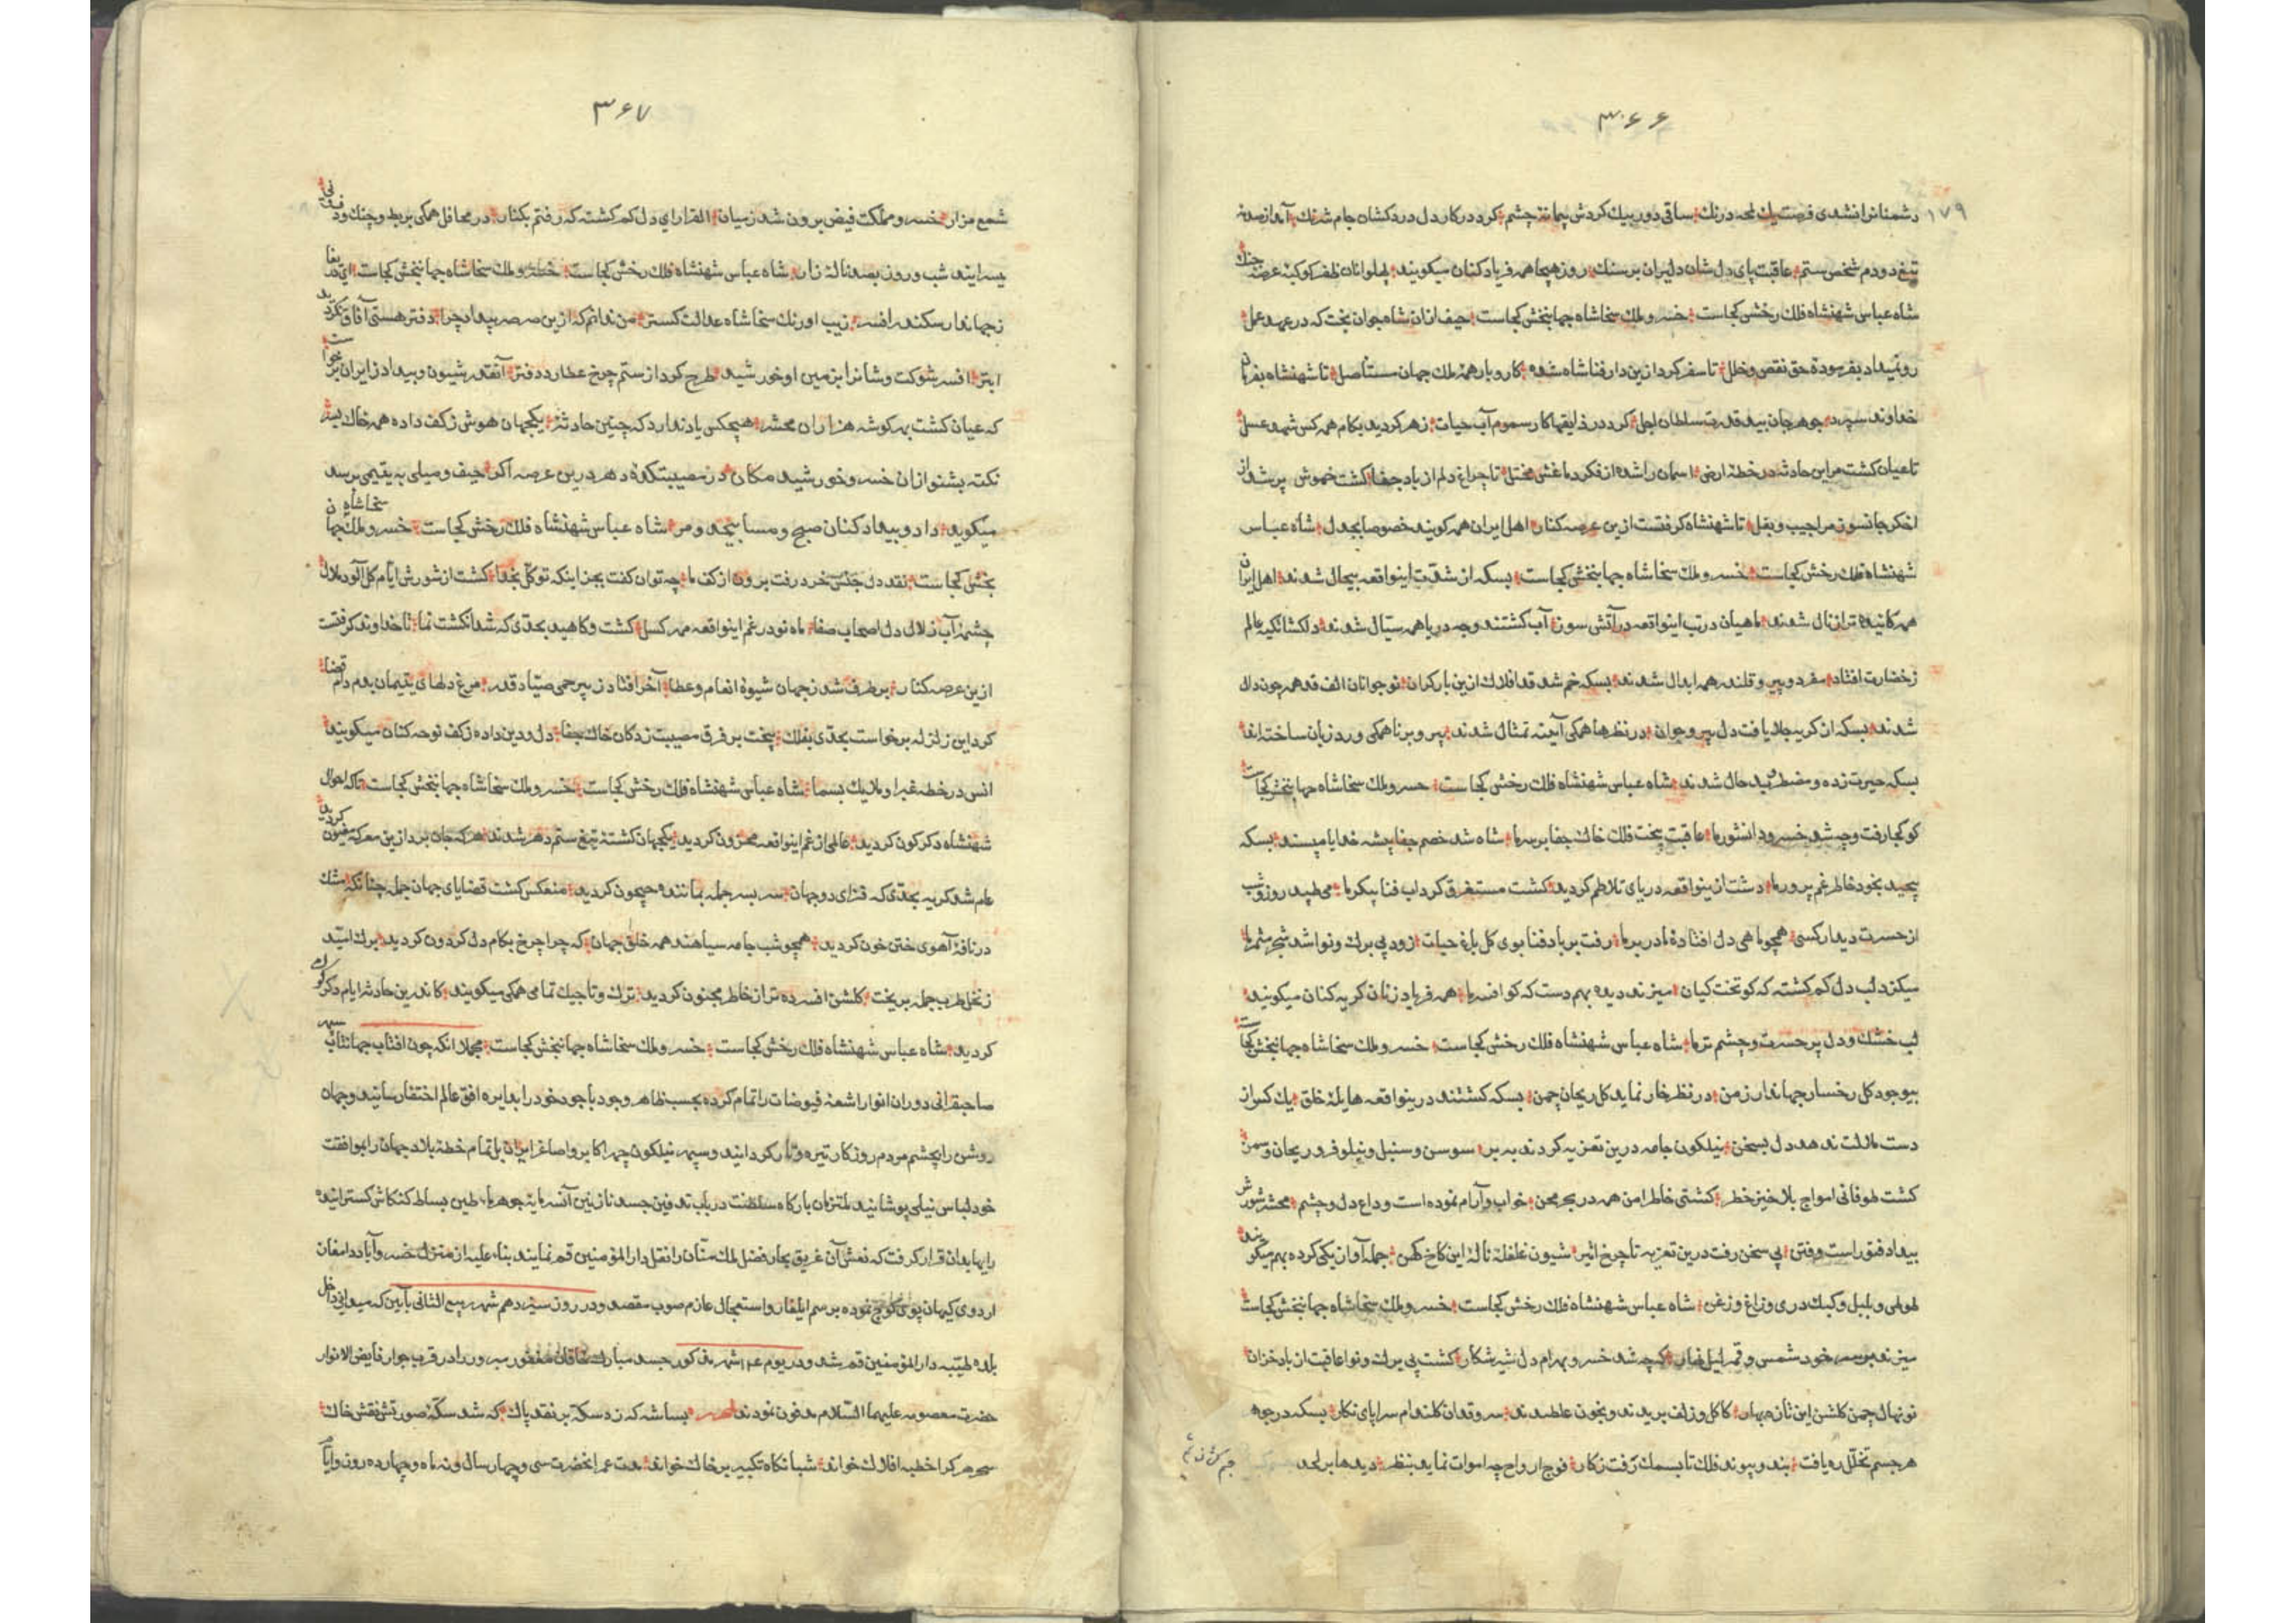 ۳۶۶
۱۷۹
دشمنانرا نشدی فرصت یك لمحه درنك ساقی دور بیك کردش پیمانهٔ چشم کرد در کار دل دردکشان جام شرنك آه از صدمهٔ
تیغ دودم شخص ستم عاقبت پای دل شان دلیران بر سنك روز هیجا همه فریاد کنان میکویند پهلوانان ظفر کوکبهٔ عرصهٔ جنك
شاه عباس شهنشاه فلك رخش کجاست خسرو ملك سخا شاه جهانبخش کجاست حیف ازان شاه جوان بخت که در عهد عمل
رو نمیداد بفرمودهٔ حق نقص و خلل تا سفر کرد ازین دار فنا شاه شده کار و بار همهٔ ملك جهان مستأصل تا شهنشاه بفرمان
خداوند سپرد جوهر جان بید قدرت سلطان اجل کرد در ذایقها کار سموم آب حیات زهر کردید بکام همه کس شهد عسل
تا عیان کشت مر این حادثه در خطهٔ ارض اسمان را شده از فکر دماغش مختل تا چراغ دلم از باد جفا کشت خموش پر شد از
اخکر جانسوز مرا جیب و بغل تا شهنشاه کرفتست ازین عرصه کنار اهل ایران همه کویند خصوصا بجدل شاه عباس
شهنشاه فلك رخش کجاست خسرو ملك سخا شاه جهانبخش کجاست بسکه از شدّت اینواقعه بیحال شدند اهل ایران
همه کاتیده تر از نال شدند ماهیان در تب اینواقعه در آتش سوز آب کشتند و چه دریا همه سیّال شدند دلکشا تکیه عالم
ز خضارت افتاد مفرد و پیر و قلندر همه ابدال شدند بسکه خم شد قد افلاك ازین بار کران نو جوانان الف قد همه چون دال
شدند بسکه از کریه جلا یافت دل پیر و جوان در نظرها همکی آینه تمثال شدند پیر و برنا همکی ورد زبان ساخته اند
بسکه حیرت زده و مضطرب حال شدند شاه عباس شهنشاه فلك رخش کجاست خسرو ملك سخا شاه جهانبخش کجاست
کو کجا رفت و چه شد خسرو دانشور ما عاقبت پخت فلك خاك جفا بر سر ما شاه شد خصم جفا پیشه خدایا مپسند بسکه
پیچید بخود خاطر غم پرور ما دشت ازینواقعه دریای تلاطم کردید کشت مستغرق کرداب فنا پیکر ما می طپد روز و شب
از حسرت دیدار کسی همچو ماهی دل افتادهٔ ما در بر ما رفت بر باد فنا بوی کل باغ حیات زود بی برك و نوا شد شجر مثمر ما
میکزد لب دل کم کشته که کو تخت کیان میزند دیده بهم دست که کو افسر ما همه فریاد زنان کریه کنان میکویند
لب خشك و دل پر حسرت و چشم تر ما شاه عباس شهنشاه فلك رخش کجاست خسرو ملك سخا شاه جهانبخش کجاست
بیوجود کل رخسار جهاندار زمن در نظر خار نماید کل ریحان چمن بسکه کشتند درینواقعه هایلهٔ خلق یك کس از
دست ملالت ندهد دل بسخن نیلکون جامه درین تعزیه کردند به بر سوسن و سنبل و نیلوفر و ریحان و سمن
کشت طوفانی امواج بلا خیز خطر کشتی خاطر امن همه در بحر محن خواب و آرام نموده است وداع دل و چشم محشر شورش
بیداد فتور است و فتن پی سخن رفت درین تعزیه تا چرخ اثیر شیون غلغلهٔ نالهٔ این کاخ کهن جمله آواز یکی کرده بهم میکویند
طوطی و بلبل و کبك دری و زاغ و زغن شاه عباس شهنشاه فلك رخش کجاست خسرو ملك سخا شاه جهانبخش کجاست
میزند بر سر خود شمس و قمر لیل نهار که چه شد خسرو بهرام دل شیر شکار کشت بی برك و نوا عاقبت از باد خزان
نونهال چمن کلشن این تازه بهار کاکل و زلف بریدند و بخون غلطیدند سرو قدان کلندام سراپای نکار بسکه در جوهر
هر جسم تخلّل ره یافت بند و پیوند فلك تا بسمك رفت ز کار فوج ارواح چه اموات نماید بنظر دیدها بر لحد
۳۶۷
شمع مزار خسرو مملکت فیض برون شد ز میان القرار ای دل کم کشته که رفتم بکنار در محافل همکی بربط و چنك و دف و نی
یسرایند شب و روز بصد نالهٔ زار شاه عباس شهنشاه فلك رخش کجاست خسرو ملك سخا شاه جهانبخش کجاست ای دریغا
ز جهاندار سکندر افسر زیب اورنك سخا شاه عدالت کستر من ندانم که ازین صرصر بیداد چرا دفتر هستی آفاق نکردید
ابتر افسر شوکت و شانرا بزمین او خورشید طرح کرد از ستم چرخ عطارد دفتر آنقدر شیون و بیداد ز ایران برخواست
که عیان کشت بهر کوشه هزاران محشر هیچکس یاد ندارد که چنین حادثهٔ یکجهان هوش ز کف داده همه خاك بسر
نکته بشنو ازان خسرو خورشید مکان در مصیبتکدهٔ دهر درین عرصه اکر حیف و میلی به یتیمی برسد
میکوید داد و بیداد کنان صبح و مسا بیحد و مر شاه عباس شهنشاه فلك رخش کجاست خسرو ملك سخا شاه جهان
بخش کجاست نقد دل جنس خرد رفت برون از کف ما چه توان کفت بجز اینکه توکّل بخدا کشت از شورش ایّام کل آلود ملال
چشمهٔ آب زلال دل اصحاب صفا ماه نو در غم اینواقعه مهر کسل کشت و کاهید بحدّی که شد انکشت نما تا خداوند کرفتست
ازین عرصه کنار بر طرف شد ز جهان شیوهٔ انعام و عطا آخر افتاد ز بیرحمی صیّاد قدر مرغ دلهای یتیمان بدم دام قضا
کرد این زلزله برخواست بحدّی بفلك پخت بر فرق مصیبت زدکان خاك جفا دل و دین داده ز کف نوحه کنان میکویند
انس در خطه غبرا و ملایك بسما شاه عباس شهنشاه فلك رخش کجاست خسرو ملك سخا شاه جهانبخش کجاست تا که احوال
شهنشاه دکرکون کردید عالمی از غم اینواقعه محزون کردید یکجهان کشتهٔ تیغ ستم دهر شدند هر که جان برد ازین معرکه مفتون کردید
عام شد کریه بحدّی که قزای دو جهان سر بسر جمله بمانند جیحون کردید منعکس کشت قضایای جهان جمله چنانکه مشك
در نافهٔ آهوی ختن خون کردید همچو شب جامه سیاهند همه خلق جهان که چرا چرخ بکام دل کردون کردید برك امیّد
ز نخل طرب جمله بریخت کلشن افسرده تر از خاطر مجنون کردید ترك و تاجیك تمامی همکی میکویند کاندرین حادثه ایام دکرکون
کردید شاه عباس شهنشاه فلك رخش کجاست خسرو ملك سخا شاه جهانبخش کجاست مجملا انکه چون افتاب جهانتاب سپهر
صاحبقرانی دوران انوار اشعهٔ فیوضات را تمام کرده بحسب ظاهر وجود با جود خود را بدایره افق عالم اختفا رسانید و جهان
روشن را بچشم مردم روزکار تیره و تار کردانید و سپهر نیلکون چهر اکابر و اصاغر ایران بل تمام خطهٔ بلاد جهان را بموافقت
خود لباس نیلی پوشانید ملتزمان بارکاه سلطنت در باب تدفین جسد نازنین آنسرمایهٔ جوهر ماء طین بساط کنکاش کسترانیده
رایها بدان قرار کرفت که نعش آن غریق بحار فضل ملك منّان را نقل دار المؤمنین قم نمایند بناء علیه از منزل خسروآباد دامغان
اردوی کیهان پوی کوچ نموده برسم ایلغار و استعجال عازم صوب مقصد و در روز سیزدهم شهر ربیع الثانی بآیین که میدانی داخل
بلده طیّبه دار المؤمنین قم شد و در یوم ۱۴ شهر مذکور جسد مبارك خاقان مغفور مبرور را در قرب جوار فایض الانوار
حضرت معصومه علیهما السّلام مدفون نمودند بسا شه که زد سکّه بر نقد پاك که شد سکّه صورتش نقش خاك
سحر هر کرا خطبه افلاك خواند شبانکاه تکبیر بر خاك خواند مدت عمر انحضرت سی و چهار سال و نه ماه و چهارده روز و ایّام